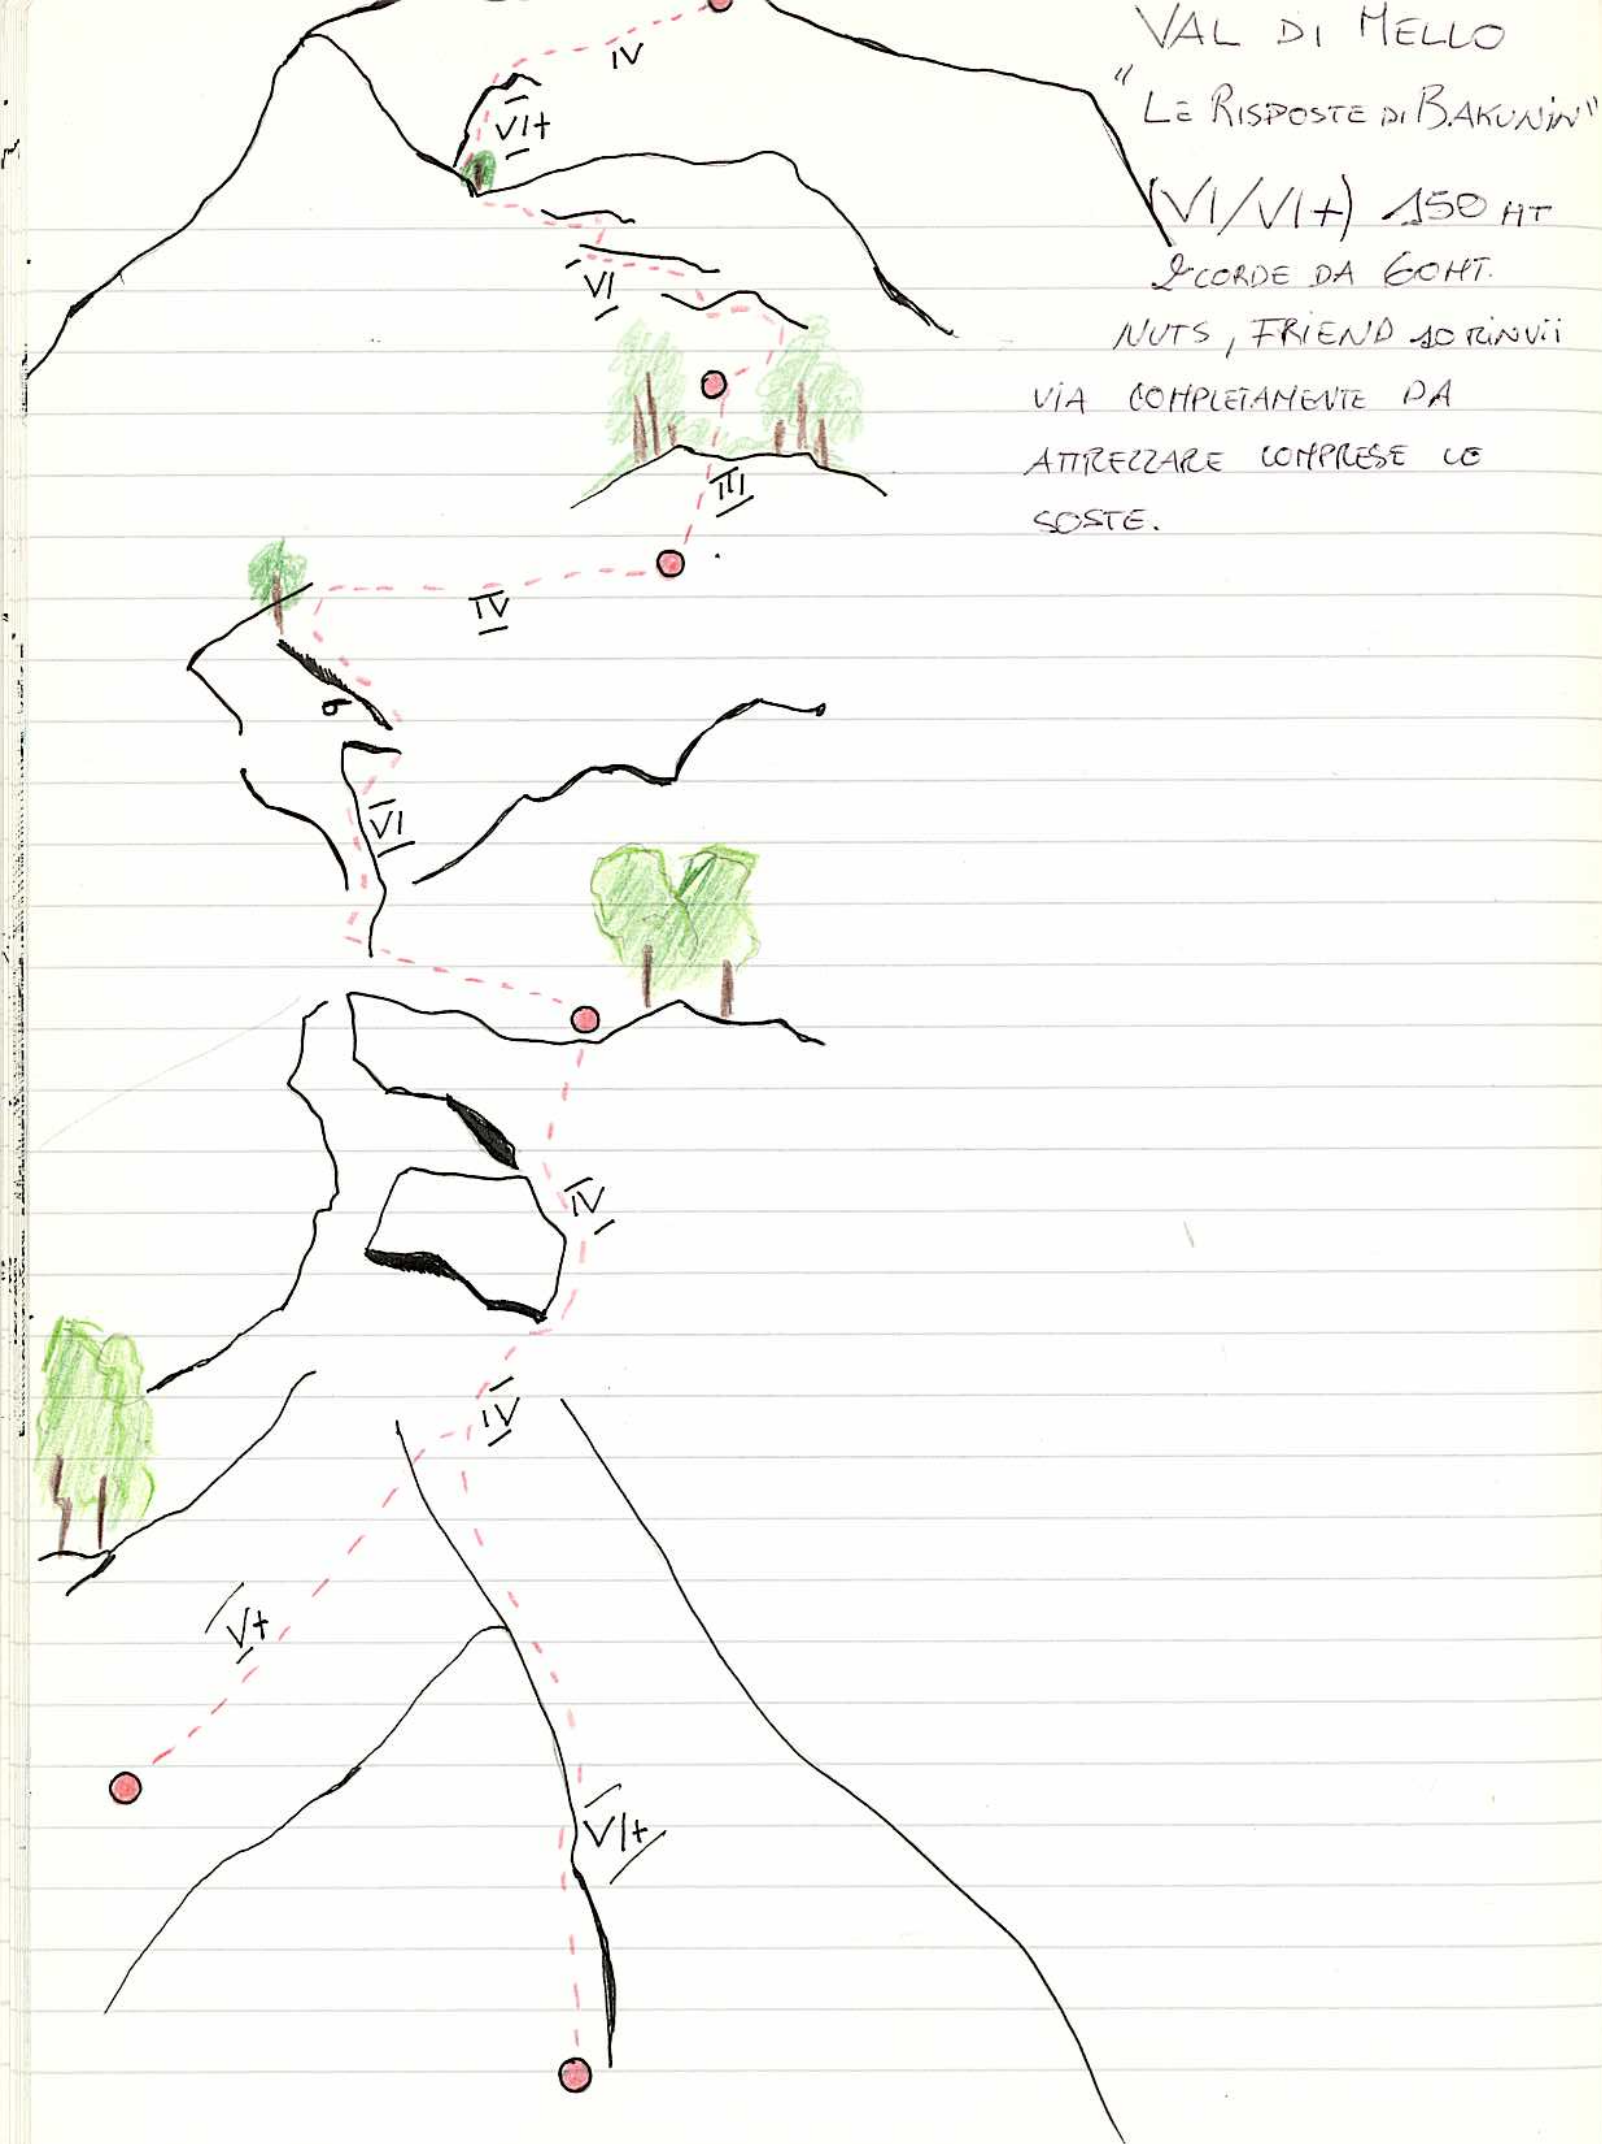 VAL DI MELLO
"LE RISPOSTE DI BAKUNIN"
(VI/VI+) 150 MT
2 CORDE DA 60MT.
NUTS, FRIEND 10 RINVII
VIA COMPLETAMENTE DA
ATTREZZARE COMPRESE LE
SOSTE.
IV
VI+
VI
III
IV
VI
IV
IV
V+
VI+